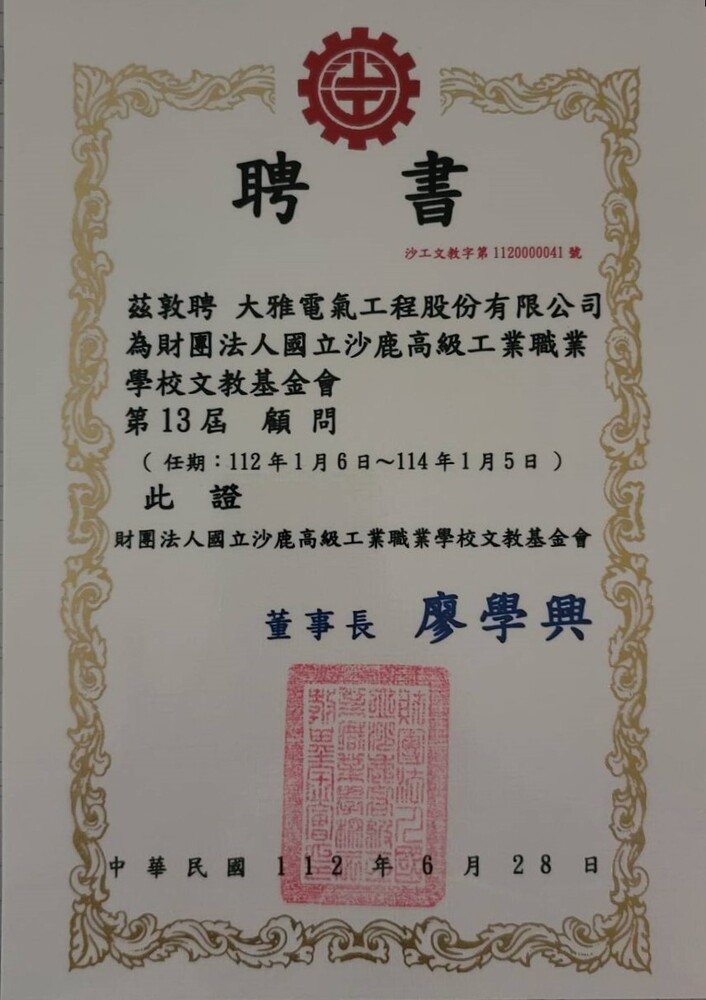 聘 書
沙工文教字第1120000041號
茲敦聘 大雅電氣工程股份有限公司
為財團法人國立沙鹿高級工業職業
學校文教基金會
第13屆 顧 問
( 任期：112年1月6日～114年1月5日 )
此 證
財團法人國立沙鹿高級工業職業學校文教基金會
董事長 廖學興
中華民國 112年6月28日